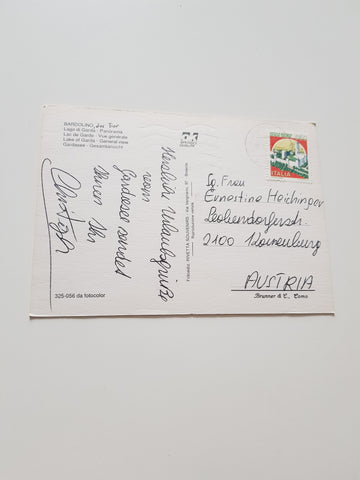 BARDOLINO
Lago di Garda - Panorama
Lac de Garde - Vue générale
Lake of Garda - General view
Gardasee - Gesamtansicht
Herzliche Urlaubsgrüße
vom
Gardasee sendet
Ihnen Ihr
Christoph
325-056 da fotocolor
Fotoediz. RIVETTA SOUVENIRS - Via Valgrisini, 57 - Brescia
Riproduzione vietata
ITALIA
Sg. Frau
Ernestine Heichinger
2100 Korneuburg
AUSTRIA
Brunner & C., Como